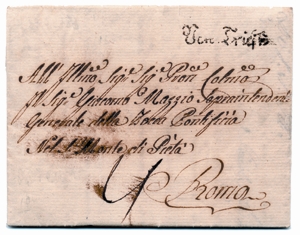 Ven. Trigs
All' Illmo Sigr Sigr Pron Colmo
Il Sigr Giacomo Mazzio Sopraintendente
Generale della Zecca Pontificia
Nel S. Monte di Pietà
Roma